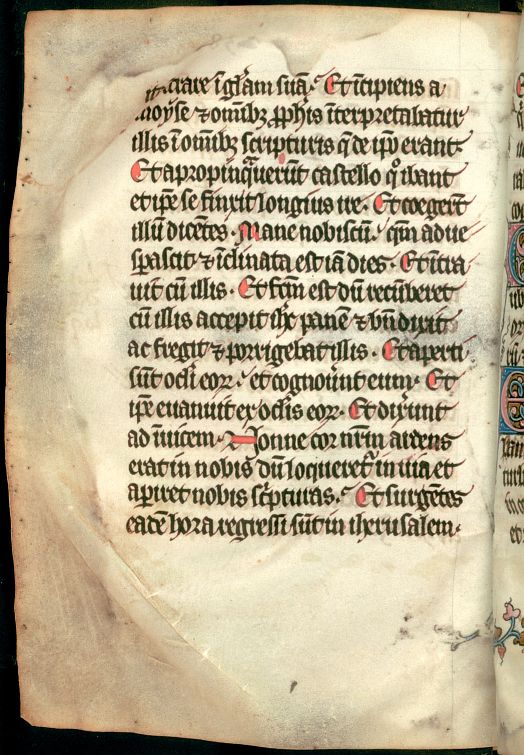 it crare ī gl̄am suā. Et īcipiens a
moyse ⁊ om̄ibꝫ ꝓphīs īterpretabatur
illis ī om̄ibꝫ scripturis q̄ de ip̄o erant
Et apropinq̄uerūt castello qͦ ibant
et ip̄e se finxit longius ire. Et coegerūt
illū dicētes. Mane nobiscū. qm̄ aduе
sp̄ascit ⁊ īclinata est iā dies. Et ītra
uit cū illis. Et fc̄m est dū recūberet
cū illis accepit ih̄c panē ⁊ bn̄dixit
ac fregit ⁊ porrigebat illis. Et aperti
sūt ocl̄i eoꝝ. et cognouīnt eum. Et
ip̄e euanuit ex ocl̄is eoꝝ. Et dixīunt
ad īuicem. Nonne cor nr̄m ardens
erat in nobis dū loqueret᷑ in uia et
apiret nobis sc̄pturas. Et surgētes
eadē hora regressi sūt in iherusalem.